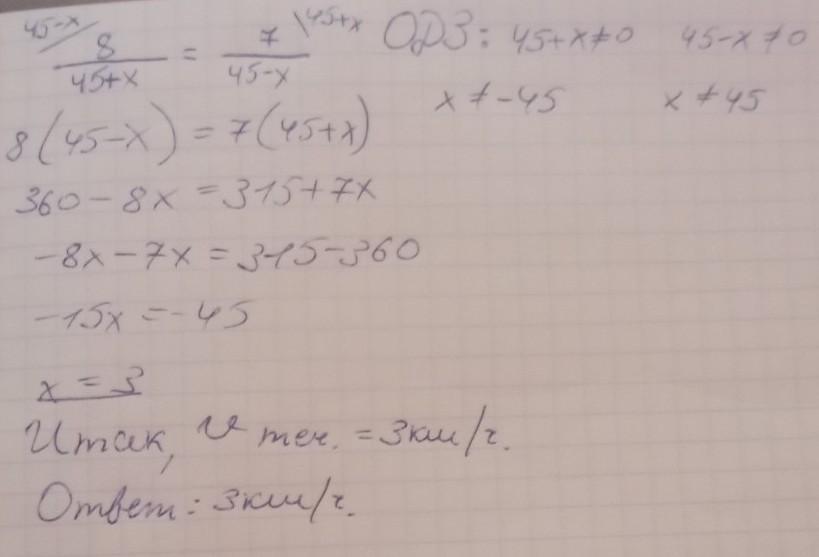 45-x/ 8/(45+x) = 7/(45-x) \45+x ОДЗ: 45+x≠0 45-x≠0
x≠-45 x≠45
8(45-x)=7(45+x)
360-8x=315+7x
-8x-7x=315-360
-15x=-45
x=3
Итак, v теч. =3км/ч.
Ответ: 3км/ч.